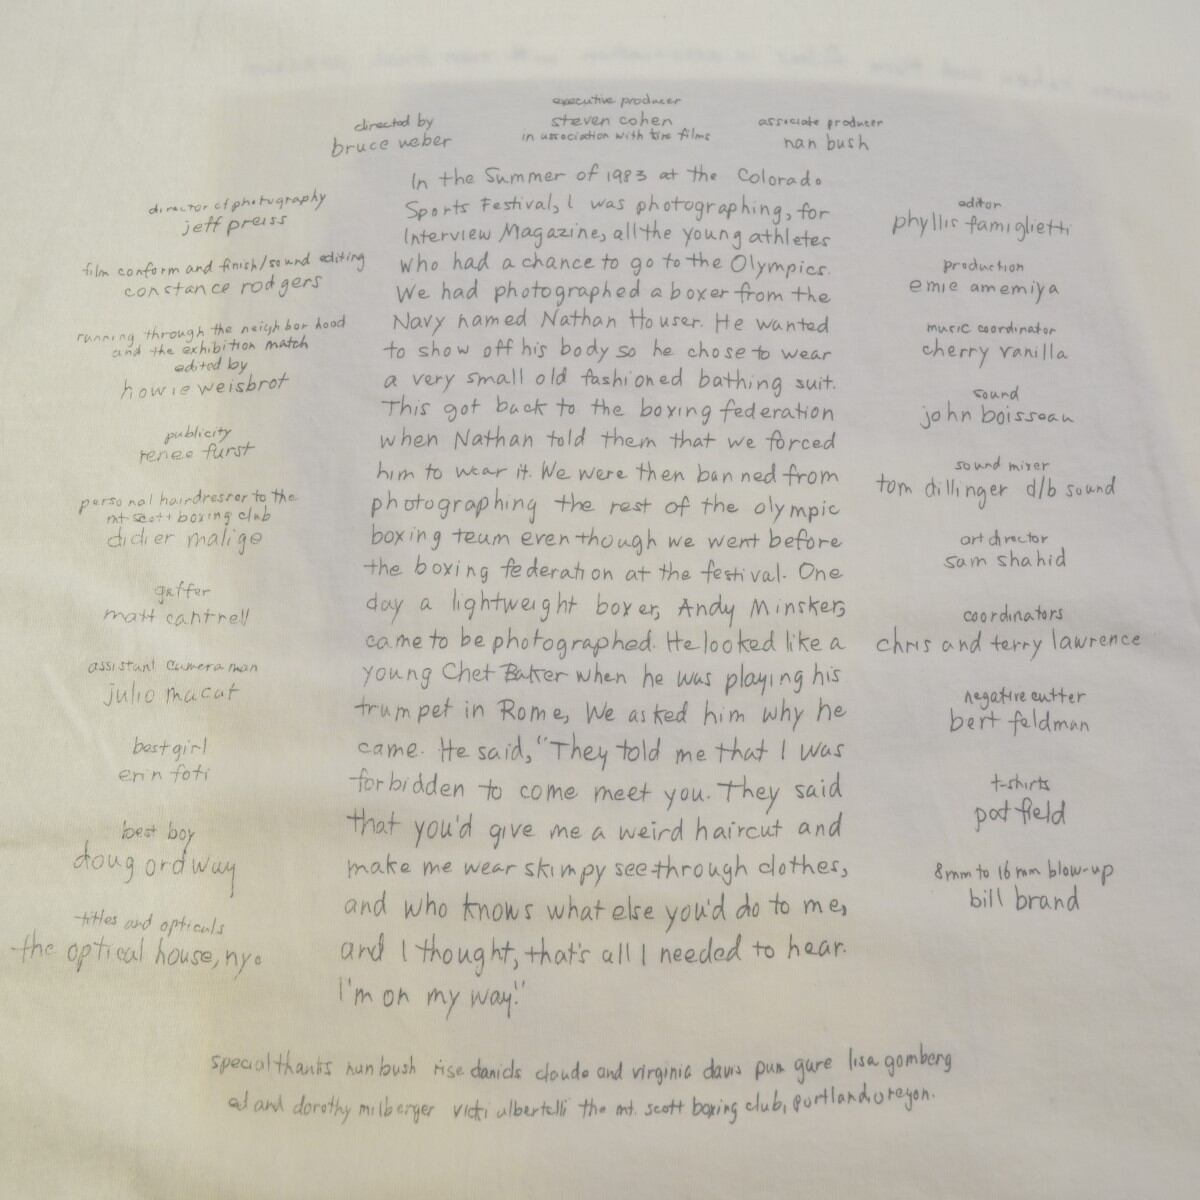 executive producer
steven cohen
in association with tire films
directed by
bruce weber
associate producer
nan bush
director of photography
jeff preiss
film conform and finish/sound editing
constance rodgers
running through the neighborhood
and the exhibition match
edited by
howie weisbrot
publicity
renee furst
personal hairdresser to the
mt scott boxing club
didier malige
gaffer
matt cantrell
assistant cameraman
julio macat
best girl
erin foti
best boy
doug ordway
titles and opticals
the optical house, ny.
In the Summer of 1983 at the Colorado
Sports Festival, I was photographing, for
Interview Magazine, all the young athletes
who had a chance to go to the Olympics.
We had photographed a boxer from the
Navy named Nathan Houser. He wanted
to show off his body so he chose to wear
a very small old fashioned bathing suit.
This got back to the boxing federation
when Nathan told them that we forced
him to wear it. We were then banned from
photographing the rest of the olympic
boxing team even though we went before
the boxing federation at the festival. One
day a lightweight boxer, Andy Minsker,
came to be photographed. He looked like a
young Chet Baker when he was playing his
trumpet in Rome, We asked him why he
came. He said, "They told me that I was
forbidden to come meet you. They said
that you'd give me a weird haircut and
make me wear skimpy see-through clothes,
and who knows what else you'd do to me,
and I thought, that's all I needed to hear.
I'm on my way!"
editor
phyllis famiglietti
production
emie amemiya
music coordinator
cherry vanilla
sound
john boisseau
sound mixer
tom dillinger d/b sound
art director
sam shahid
coordinators
chris and terry lawrence
negative cutter
bert feldman
t-shirts
pat field
8mm to 16mm blow-up
bill brand
special thanks nan bush rise daniels claude and virginia davis pum gare lisa gomberg
ed and dorothy milberger vicki albertelli the mt. scott boxing club, portland, oregon.